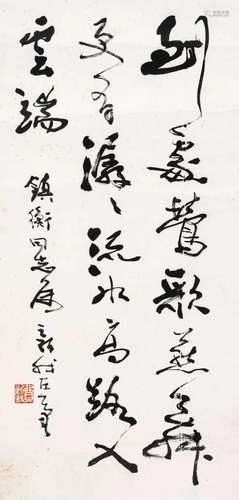 到處鶯歌燕舞
更有潺潺流水高路入
雲端
鎮衡同志屬